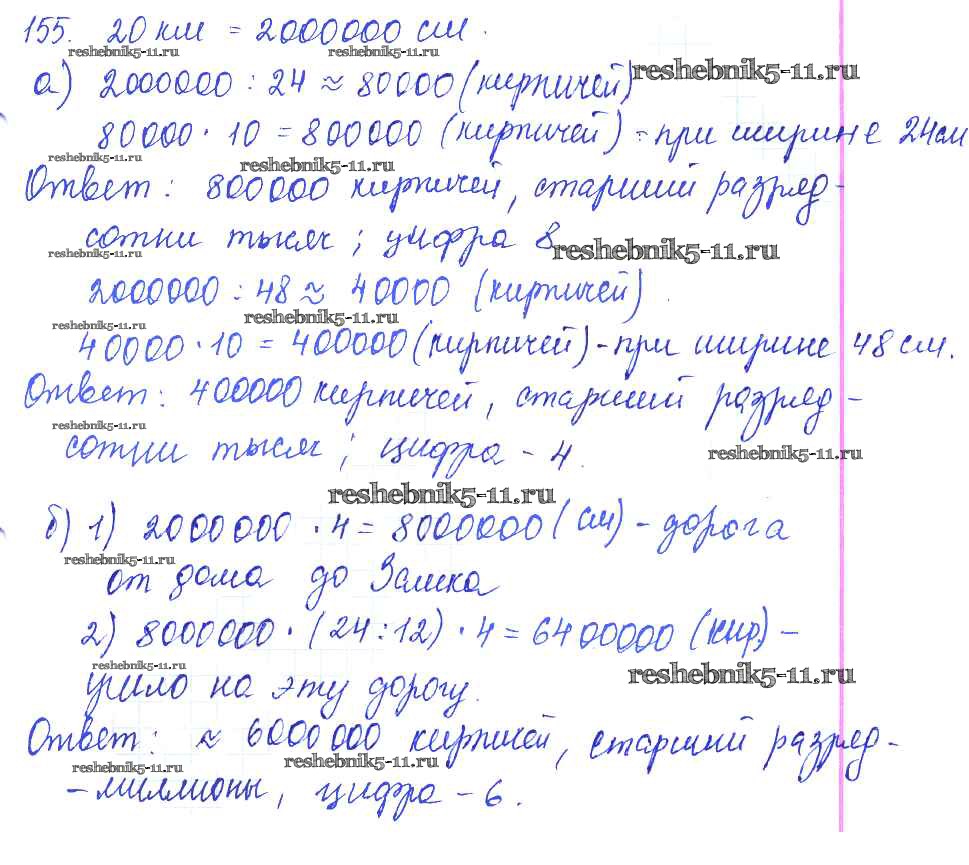 155. 20 км = 2000000 см.
reshebnik5-11.ru reshebnik5-11.ru
а) 2000000 : 24 ≈ 80000 (кирпичей) reshebnik5-11.ru
80000 · 10 = 800000 (кирпичей) - при ширине 24см
reshebnik5-11.ru reshebnik5-11.ru
Ответ: 800000 кирпичей, старший разряд -
сотни тысяч; цифра 8 reshebnik5-11.ru
reshebnik5-11.ru
2000000 : 48 ≈ 40000 (кирпичей).
reshebnik5-11.ru reshebnik5-11.ru
40000 · 10 = 400000 (кирпичей) - при ширине 48 см.
Ответ: 400000 кирпичей, старший разряд -
reshebnik5-11.ru
сотни тысяч; цифра - 4. reshebnik5-11.ru
reshebnik5-11.ru
б) 1) 2000000 · 4 = 8000000 (см) - дорога
reshebnik5-11.ru
от дома до Замка
2) 8000000 · (24 : 12) · 4 = 6400000 (кир) -
reshebnik5-11.ru reshebnik5-11.ru
ушло на эту дорогу.
Ответ: ≈ 6000000 кирпичей, старший разряд -
reshebnik5-11.ru reshebnik5-11.ru
- миллионы, цифра - 6.